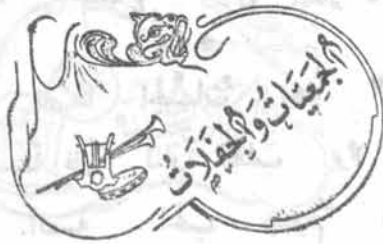 الجمعيَات وَالحفلَاتُ